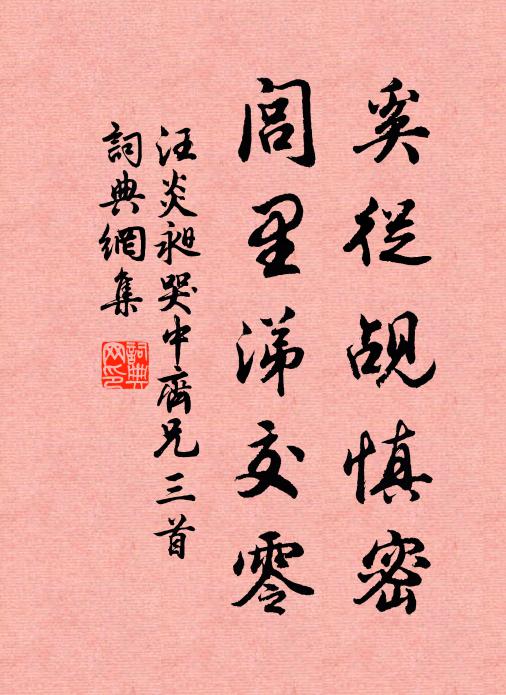 奚從覘慎密
閭里涕交零
汪炎昶哭中齋兄三首
詞典網集
詞典網印